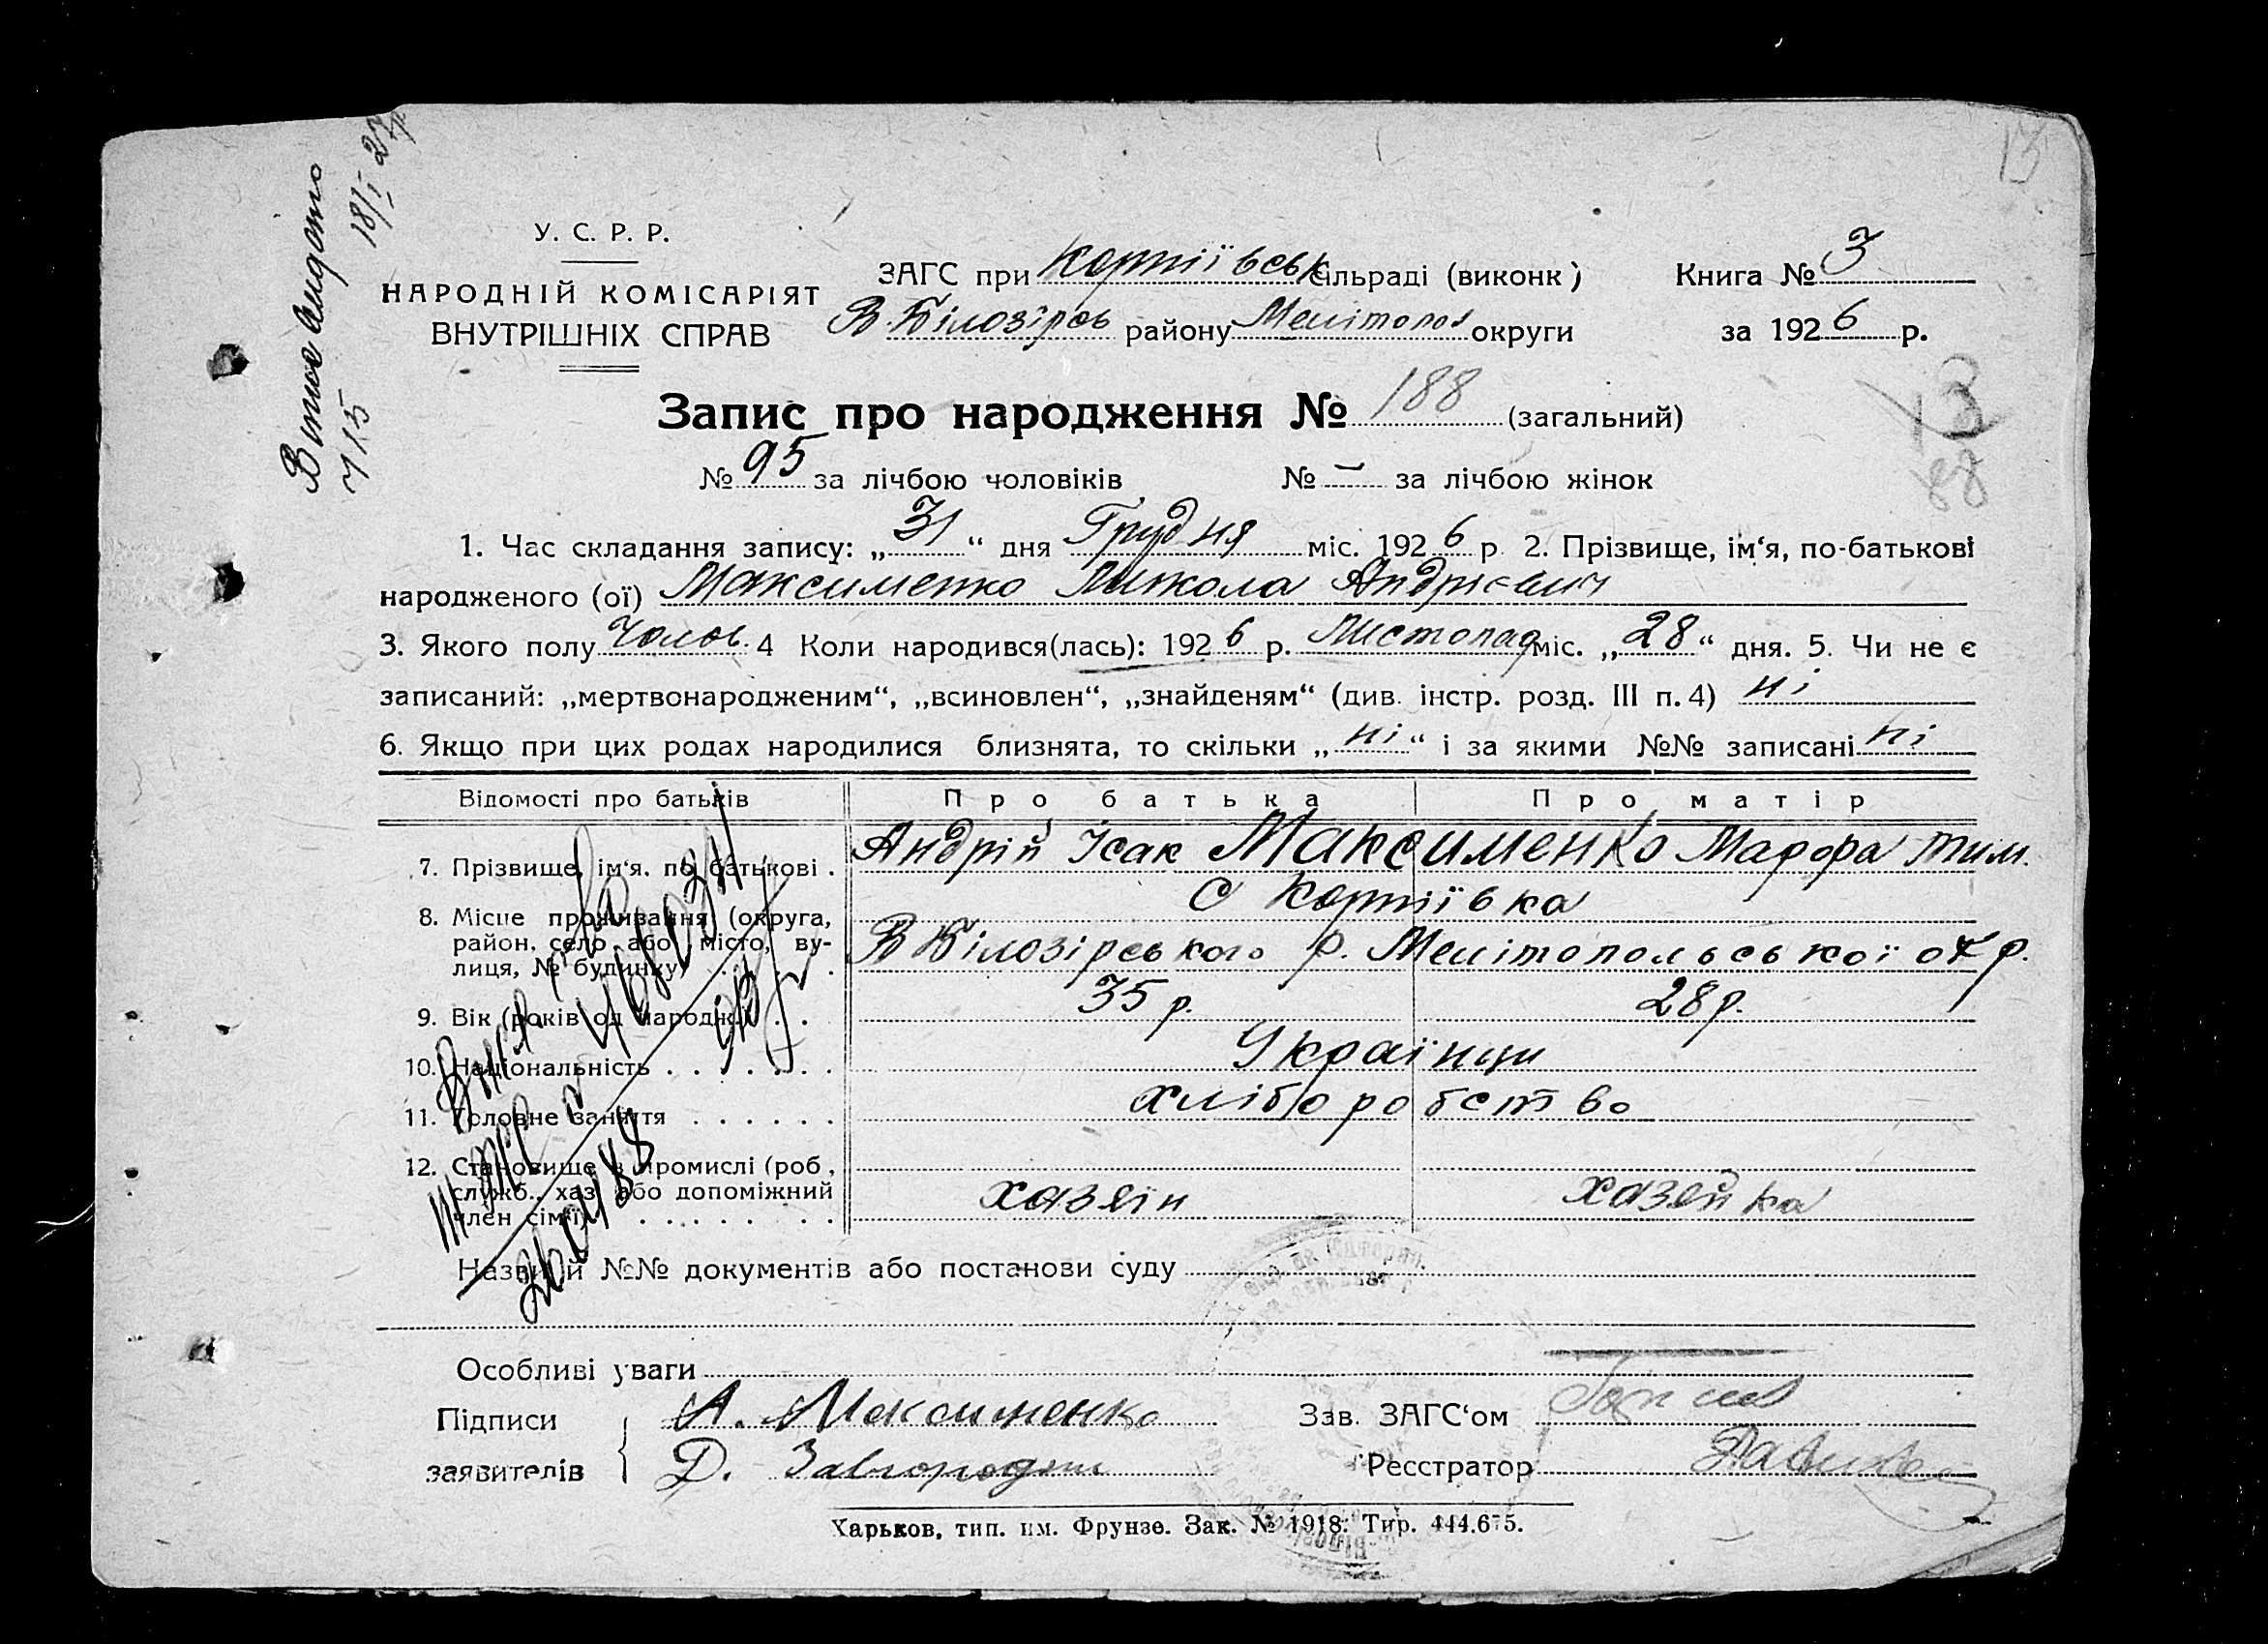 15
Витяг видано
18/I 27р
ч 15
У. С. Р. Р.
НАРОДНІЙ КОМІСАРІЯТ
ВНУТРІШНІХ СПРАВ
ЗАГС при Корніївськ сільраді (виконк)
В.-Білозірсь району Мелітопол округи
Книга № 3
за 1926 р.
Запис про народження № 188 (загальний)
13
88
№ 95 за лічбою чоловіків № – за лічбою жінок
1. Час складання запису: „31“ дня Грудня міс. 1926 р 2. Прізвище, ім‘я, по-батькові
народженого (ої) Максименко Микола Андрієвич
3. Якого полу Чолов. 4 Коли народився(лась): 1926 р. Листопад міс. „28“ дня. 5. Чи не є
записаний: „мертвонародженим“, „всиновлен“, „знайденям“ (див. інстр. розд. III п. 4) ні
6. Якщо при цих родах народилися близнята, то скільки „ні“ і за якими №№ записані ні
Відомості про батьків Про батька Про матір
7. Прізвище, ім‘я. по батькові . Андрій Ісак Максименко Мафра Тим.
8. Місце проживання (округа, с Корніївка
район, село або місто, ву-
лиця, № будинку) . . . В Білозірського р. Мелітопольської окр.
9. Вік (років од народж.) . . 35 р. 28 р.
10. Національність . . . . . . . Українци
11. Головне заняття . . . . . . хліборобство
12. Становище в промислі (роб,
служб., хаз. або допоміжний
член сім‘ї) . . . . . . . хазяїн хазяйка
Назви й №№ документів або постанови суду
Особливі уваги
Підписи А. Максименко Зав. ЗАГС‘ом
заявителів Д. Завгородний Реєстратор
Харьков, тип. им. Фрунзе. Зак. № 1918. Тир. 444.675.